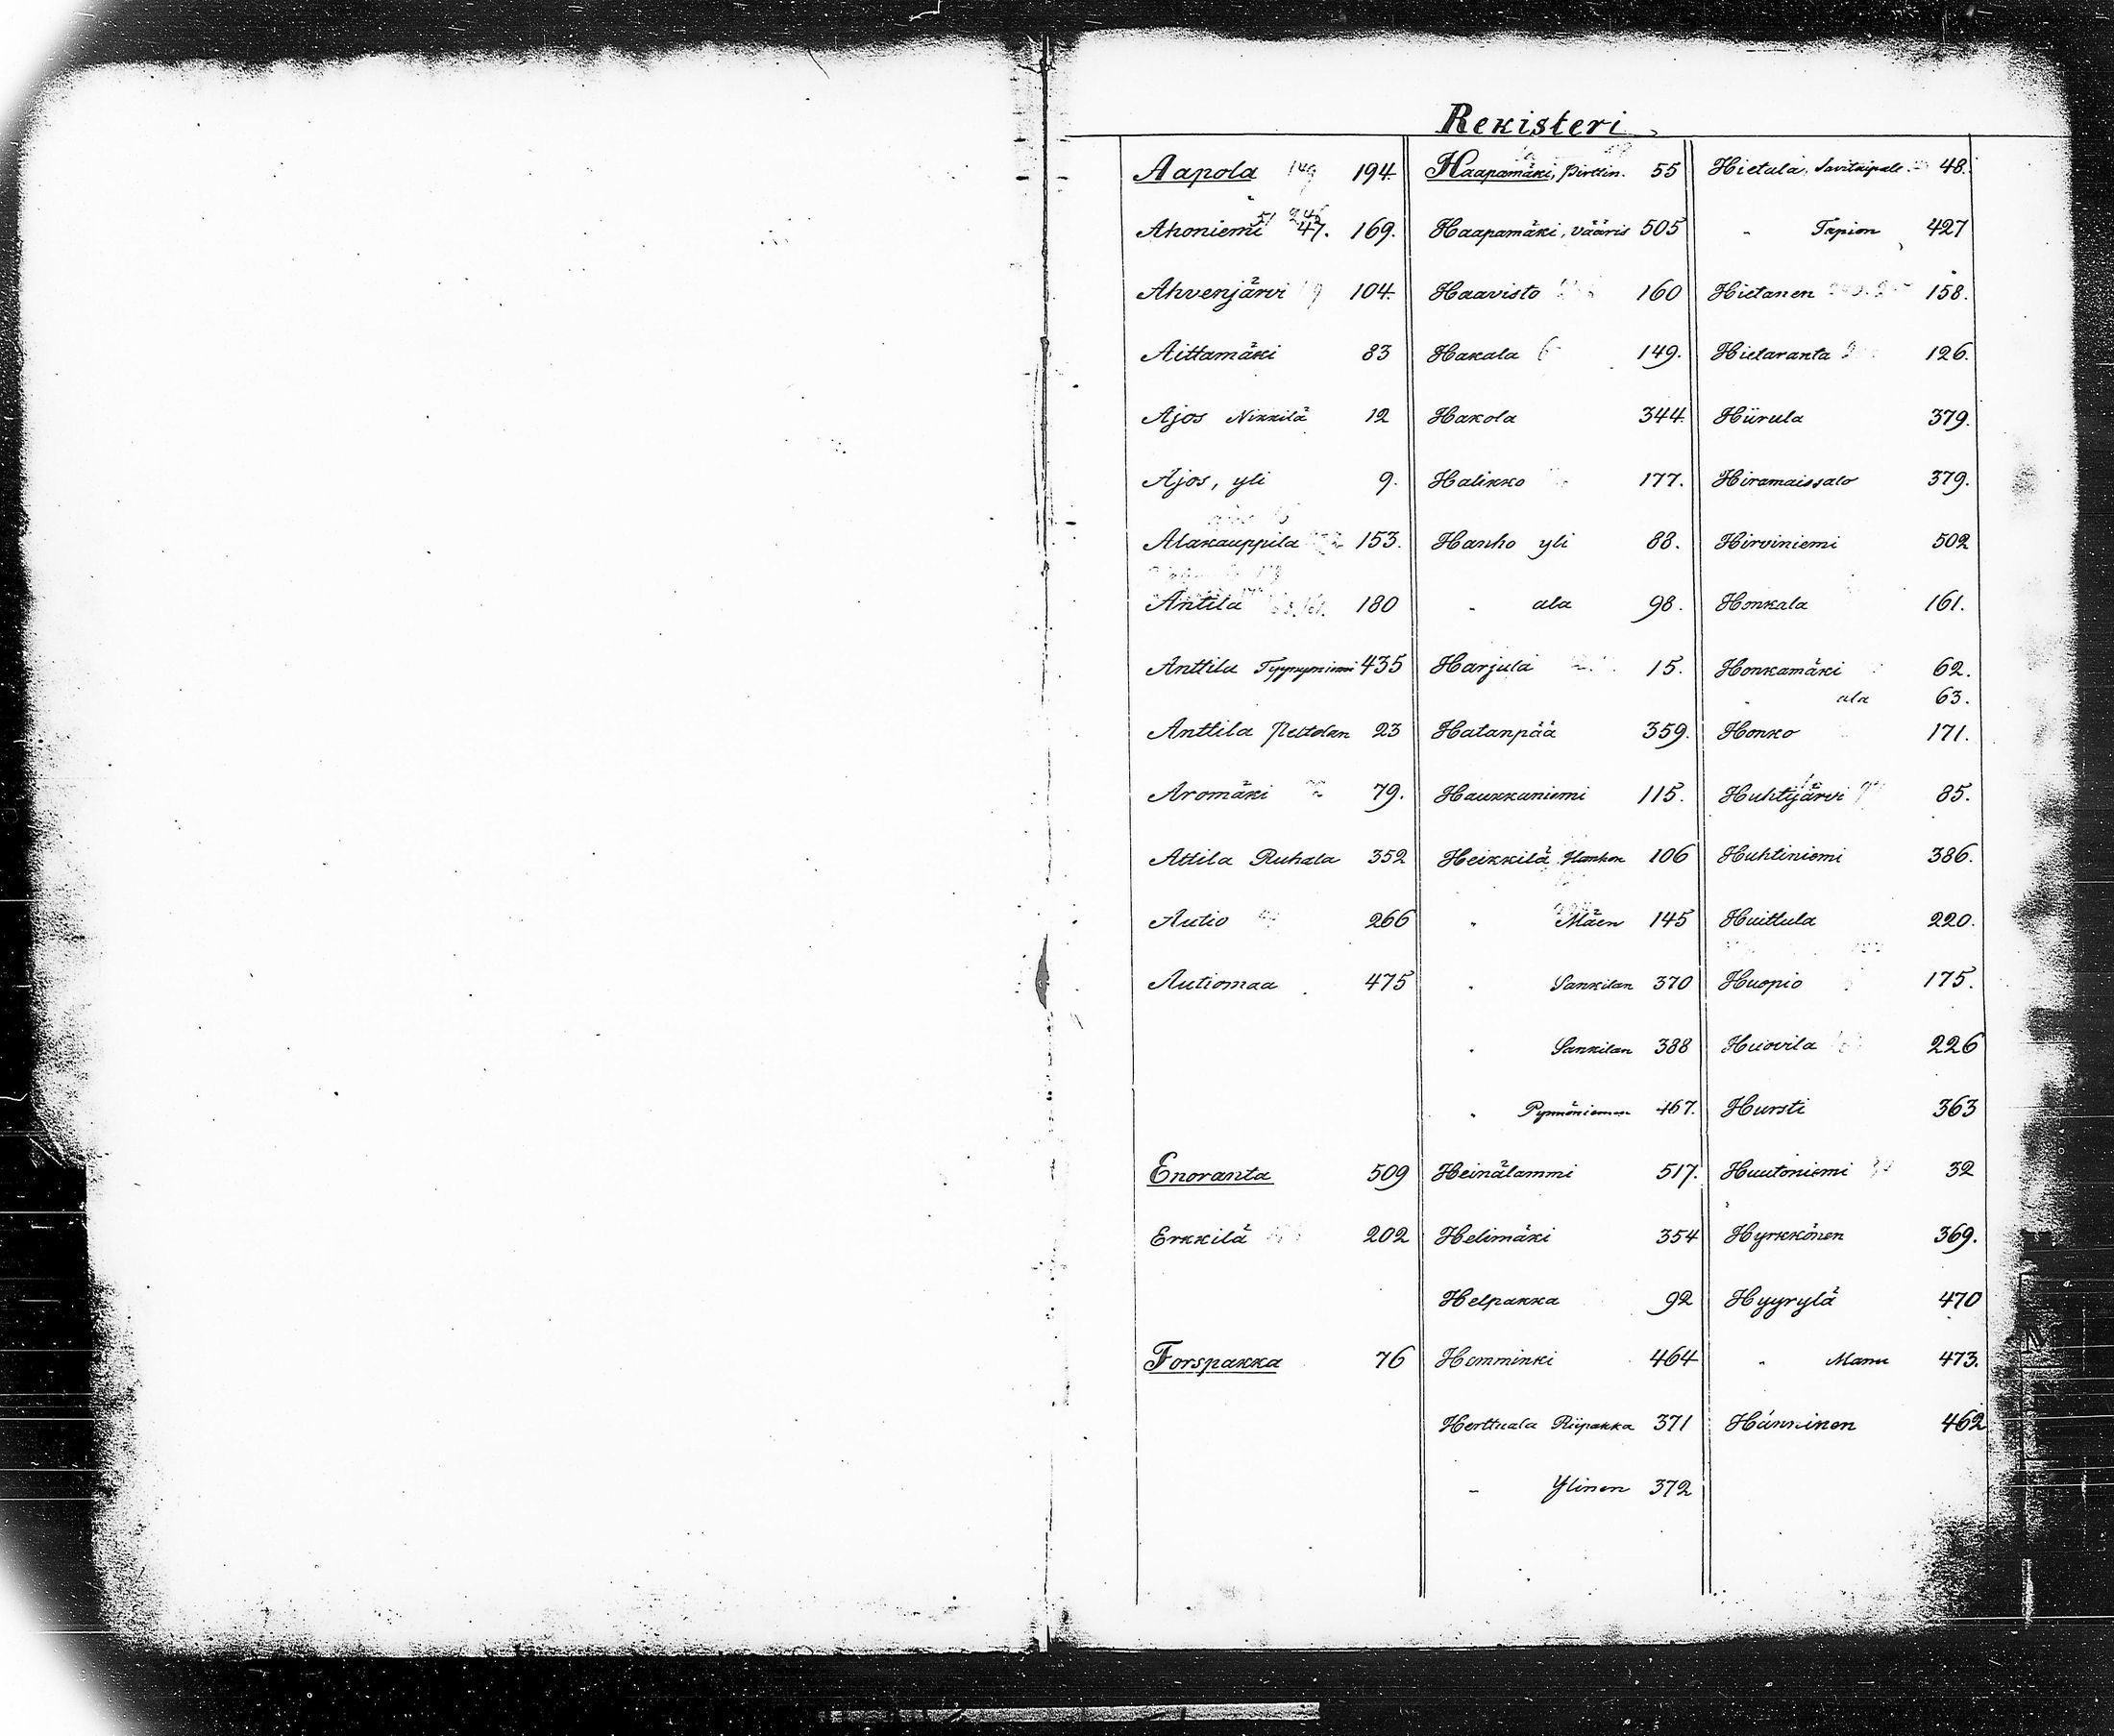 Rekisteri
Aapola 149 194
Ahoniemi 51 246 47. 169.
Ahvenjärvi 104.
Aittamäki 83
Ajos Nikkilä 12
Ajos, yli 9.
Alakauppila 153.
Antila 180
Anttila Tyyryniemi 435
Anttila Peltolan 23
Aromäki 79.
Attila Ruhala 352
Autio 266
Autiomaa 475
Enoranta 509
Erkkilä 202
Forspakka 76
Haapamäki, Pirttin. 55
Haapamäki, Vääris 505
Haavisto 160
Hakala 149.
Hakola 344.
Halikko 177.
Hanho yli 88.
" ala 98.
Harjula 15.
Hatanpää 359.
Haukkaniemi 115.
Heikkilä Hanhon 106
" Mäen 145
" Sankilan 370
" Sankilan 388
" Pynnöniemen 467.
Heinälammi 517.
Helimäki 354
Helpakka 92
Hemminki 464
Herttuala Riipakka 371
" Ylinen 372
Hietala, Savitaipale 48.
" Tapion 427
Hietanen 158.
Hietaranta 126.
Hiirula 379.
Hiramaissalo 379.
Hirviniemi 502
Honkala 161.
Honkamäki 62.
" ala 63.
Honko 171.
Huhtijärvi 85.
Huhtiniemi 386.
Huittula 220.
Huopio 175.
Huovila 226
Hursti 363
Huutoniemi 32
Hyrkkönen 369.
Hyyrylä 470
" Manu 473.
Hänninen 462